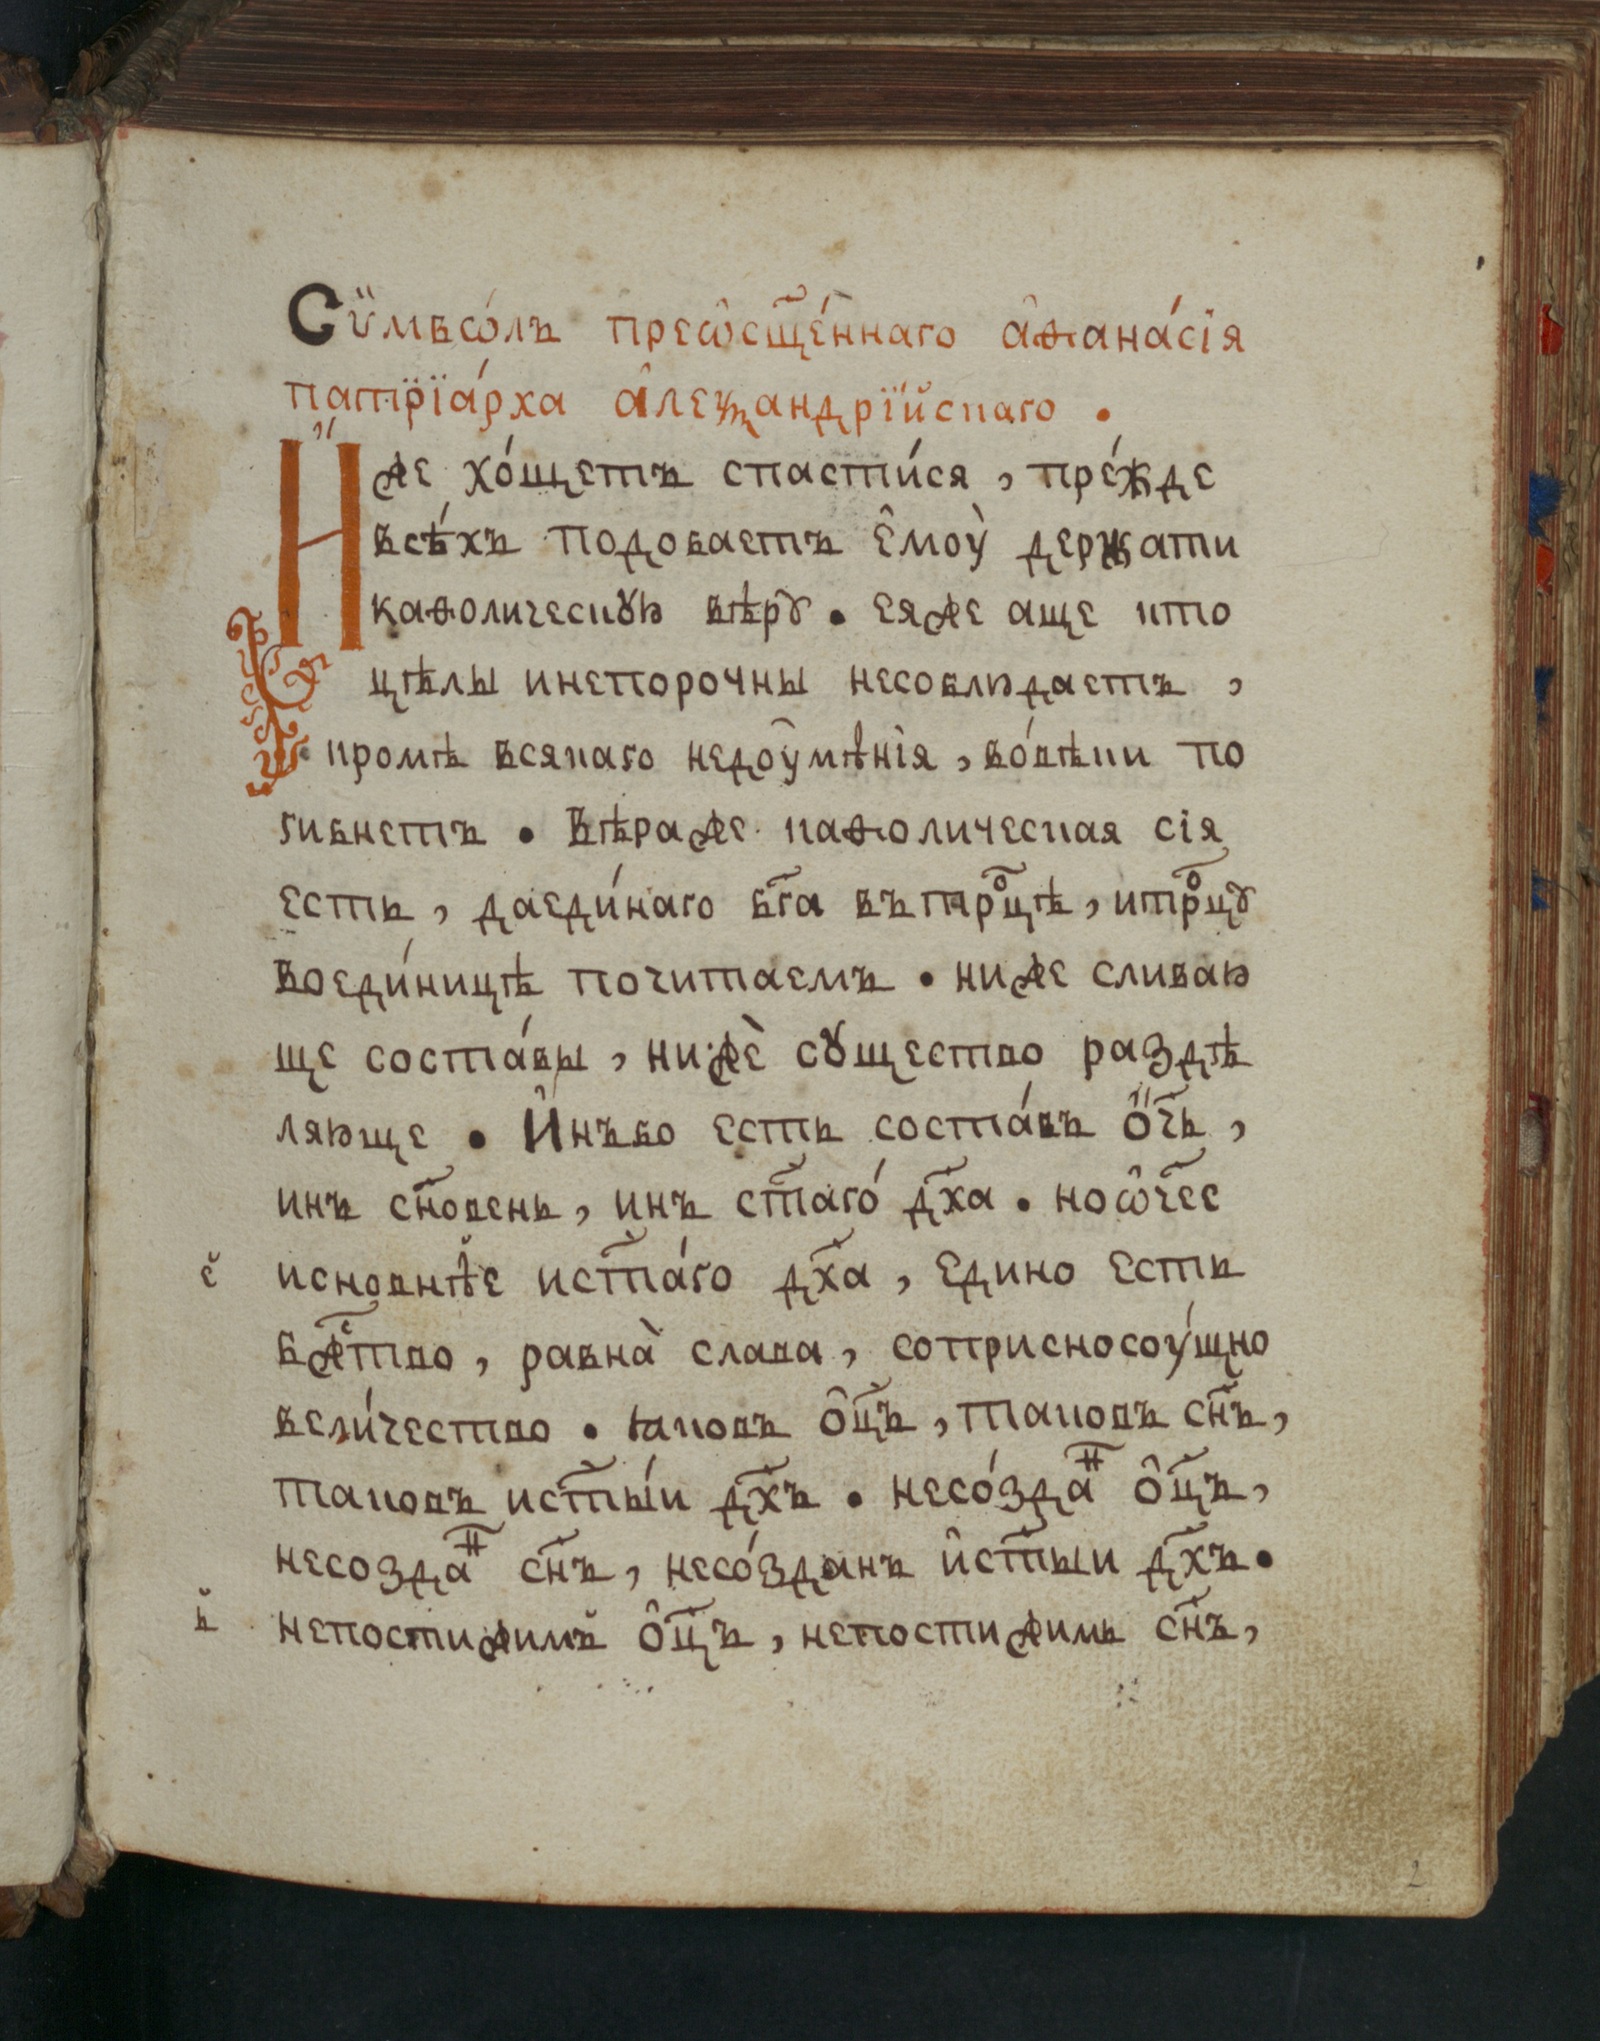 Сѵ̈мвѡ́лъ преѡ̑сщ҃е́ннаго а̑ѳана́сїя
патрїа́рха а̑леѯандрїйскаго .
И́же хо́щетъ спасти́ся , пре́жде
всѣ́хъ подобаетъ е̑моу̀ держати
каѳолическꙋю вѣрꙋ . еяже аще кто
цѣлы инепорочны несоблюдаетъ ,
кромѣ всякаго недоу̑мѣ́нїя , во́вѣки по
гибнетъ . Вѣраже каѳолическая сїя
есть , даеди́наго бг҃а въ трⷪ҇цѣ , итрⷪ҇цꙋ
воеди́ницѣ почитаемъ . ниже сливаю
ще соста́вы , нижѐ сꙋщество раздѣ
ляюще . И̑нъбо есть соста́въ ѻ҃чь ,
инъ сн҃овень , инъ ст҃аго́ дх҃а . ноѡ҃чее
исновнѣ́е ист҃а́го дх҃а , едино есть
бжⷭ҇тво , равна̀ слава , соприсносоу́щно
вели́чество . ꙗковъ о̑ц҃ъ , таковъ сн҃ъ ,
таковъ ист҃ы́и дх҃ъ . несо́здаⷩ҇ о̑ц҃ъ ,
несоздаⷩ҇ сн҃ъ , несо́зданъ и̑ст҃ыи дх҃ъ .
непостижимъ о̑ц҃ъ , непостижимь сн҃ъ ,
2